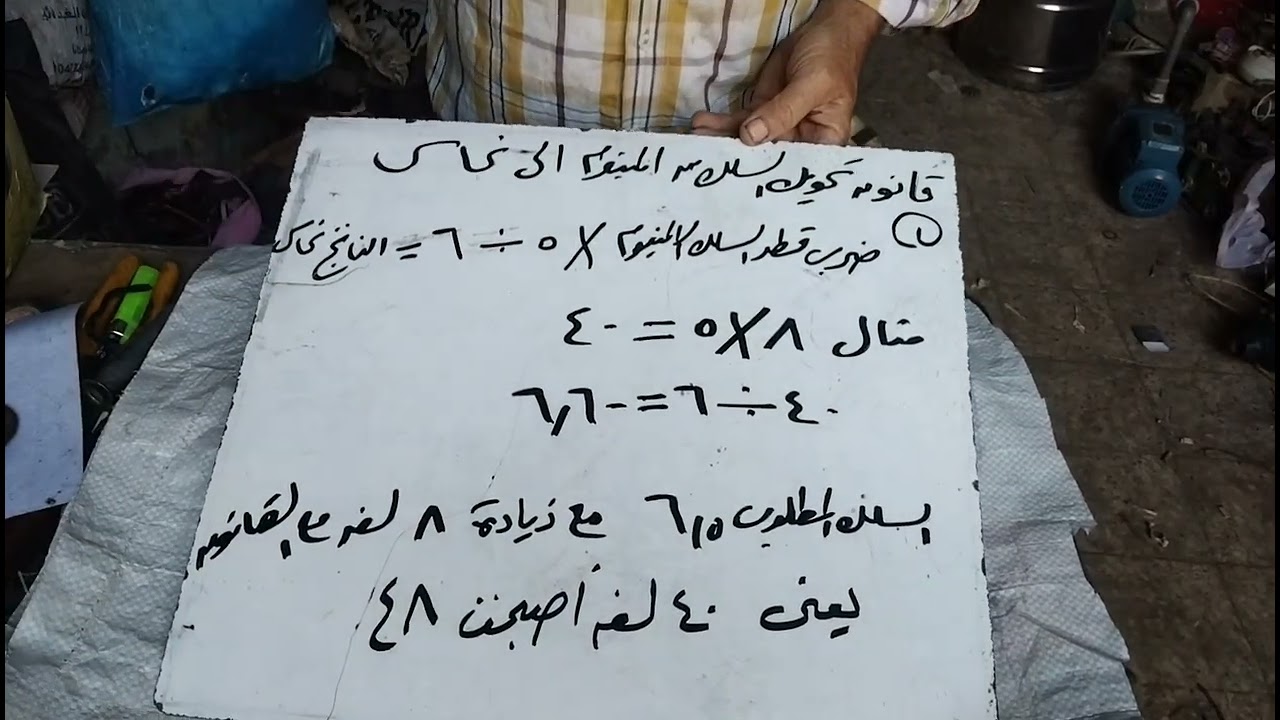 قانون تحويل السلك من المنيوم الى نحاس
① ضرب قطر السلك المنيوم X ٥ ÷ ٦ = الناتج نحاس
مثال ٨ X ٥ = ٤٠
٤٠ ÷ ٦ = ٦,٦٠
السلك المطلوب ٦,٥ مع زيادة ٨ لفه مع القانون
يعنى ٤٠ لفه أصبحت ٤٨